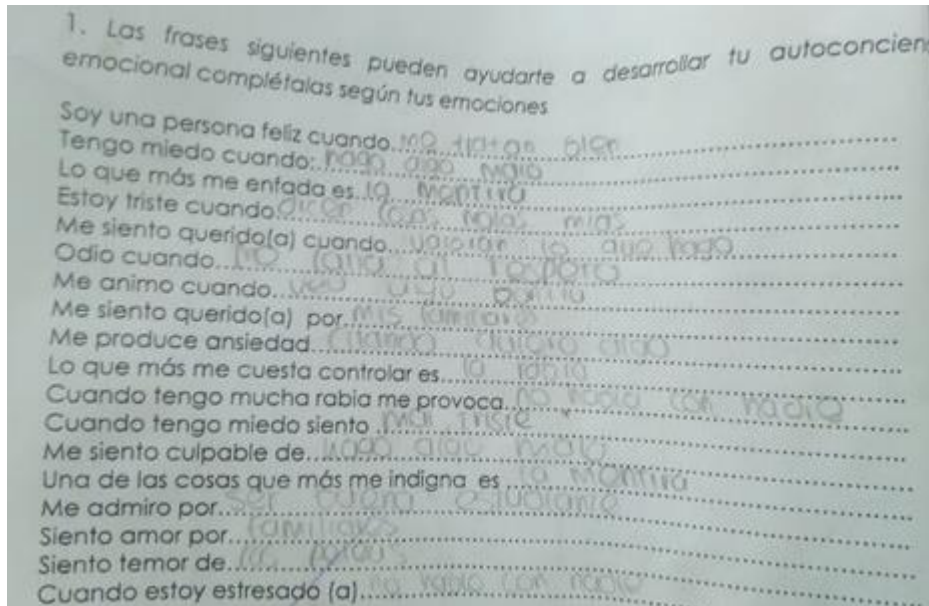 1. Las frases siguientes pueden ayudarte a desarrollar tu autoconcien
emocional complétalas según tus emociones
Soy una persona feliz cuando me tratan bien
Tengo miedo cuando: hago algo malo
Lo que más me enfada es la mentira
Estoy triste cuando dicen cosas malas mias
Me siento querido(a) cuando valoran lo que hago
Odio cuando me falta al respero
Me animo cuando veo algo bonito
Me siento querido(a) por mis familiares
Me produce ansiedad cuando quiero algo
Lo que más me cuesta controlar es la rabia
Cuando tengo mucha rabia me provoca no hablo con nadie
Cuando tengo miedo siento mal triste
Me siento culpable de hago algo malo
Una de las cosas que más me indigna es la mentira
Me admiro por ser buena estudiante
Siento amor por familiares
Siento temor de los
Cuando estoy estresado (a) no hablo con nadie